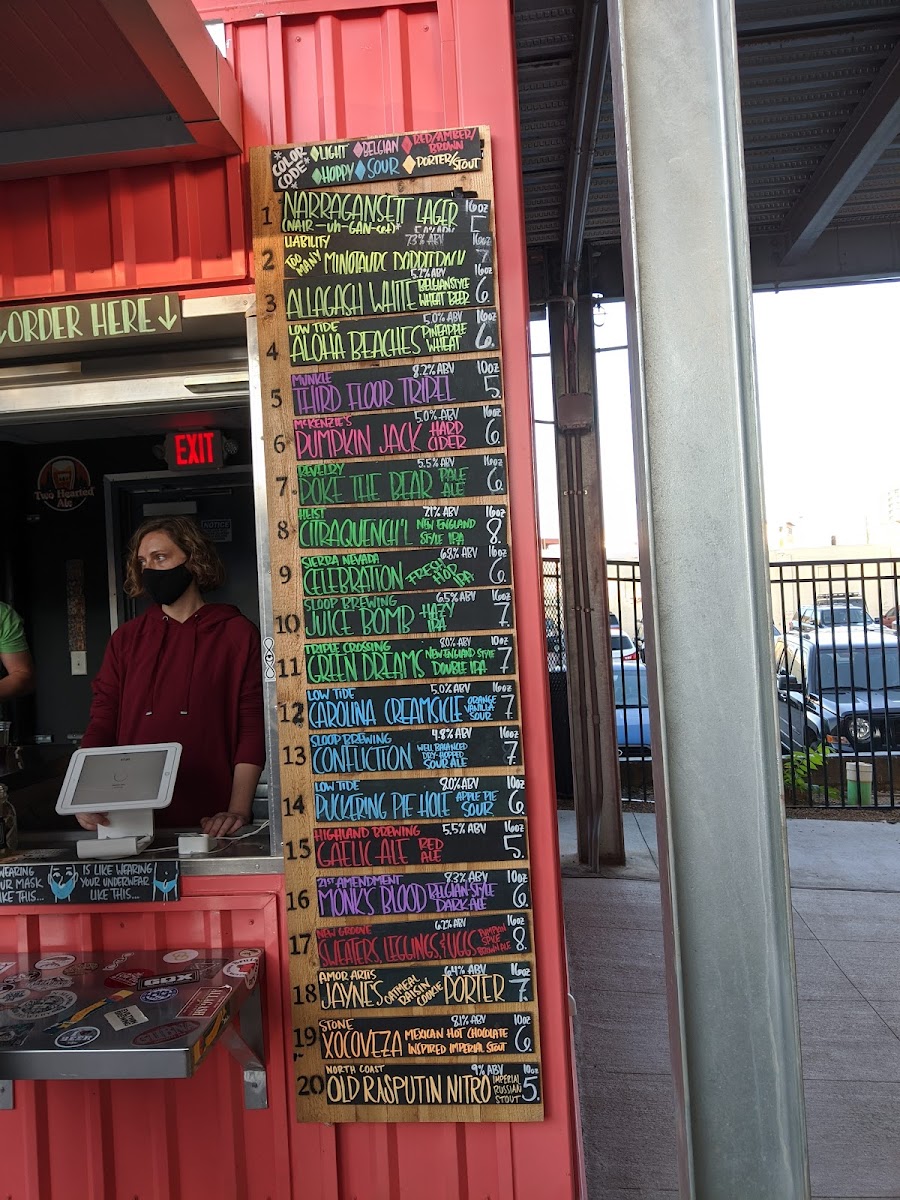 *COLOR CODE* LIGHT BELGIAN RED/AMBER/BROWN
HOPPY SOUR PORTER/STOUT
1 NARRAGANSETT LAGER 16oz 5
(NAIR-uh-GAN-set)* 5.0% ABV
LIABILITY 7.3% ABV 16oz
2 TOO MANY MINOTAUR 7
5.2% ABV 16oz
3 ALLAGASH WHITE BELGIAN STYLE WHEAT BEER 6
LOW TIDE 5.0% ABV 16oz
4 ALOHA BEACHES PINEAPPLE WHEAT 6.
MUNKLE 8.2% ABV 10oz
5 THIRD FLOOR TRIPEL 5.
McKENZIE'S 5.0% ABV 16oz
6 PUMPKIN JACK HARD CIDER 6.
REVELRY 5.5% ABV 16oz
7 POKE THE BEAR PALE ALE 6
HEIST 7.1% ABV 16oz
8 CITRAQUENCH'L NEW ENGLAND STYLE IPA 8.
SIERRA NEVADA 6.8% ABV 16oz
9 CELEBRATION FRESH HOP IPA 6
SLOOP BREWING 6.5% ABV 16oz
10 JUICE BOMB HAZY IPA 7
TRIPLE CROSSING 8.0% ABV 10oz
11 GREEN DREAMS NEW ENGLAND STYLE DOUBLE IPA 7
LOW TIDE 5.0% ABV 16oz
12 CAROLINA CREAMSICLE ORANGE VANILLA SOUR 7
SLOOP BREWING 4.8% ABV 16oz
13 CONFLICTION WELL BALANCED DRY-HOPPED SOUR ALE 7
LOW TIDE 8.0% ABV 10oz
14 PUCKERING PIE HOLE APPLE PIE SOUR 6
HIGHLAND BREWING 5.5% ABV 16oz
15 GAELIC ALE RED ALE 5.
21ST AMENDMENT 8.3% ABV 10oz
16 MONK'S BLOOD BELGIAN-STYLE DARK ALE 6
NEW GROOVE 6.2% ABV 16oz
17 SWEATERS, LEGGINGS, & UGGS PUMPKIN SPICE BROWN ALE 8
AMOR ARTIS 6.4% ABV 16oz
18 JAYNES OATMEAL RAISIN COOKIE PORTER 7.
STONE 8.1% ABV 10oz
19 XOCOVEZA MEXICAN HOT CHOCOLATE INSPIRED IMPERIAL STOUT 6
NORTH COAST 9% ABV 10oz
20 OLD RASPUTIN NITRO IMPERIAL RUSSIAN STOUT 5.
ORDER HERE
EXIT
NOTICE
Two Hearted Ale
WEARING IS LIKE WEARING
UR MASK YOUR UNDERWEAR
IKE THIS... LIKE THIS...
COX
BEER